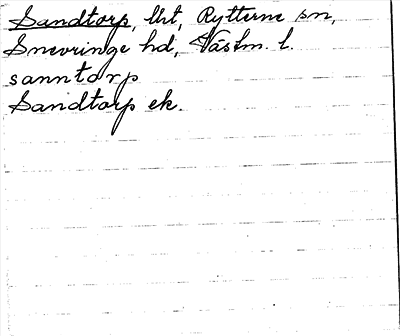 Sandtorp, lht, Rytterne sn,
Snevringe hd, Västm. l.
sanntorp
Sandtorp ek.